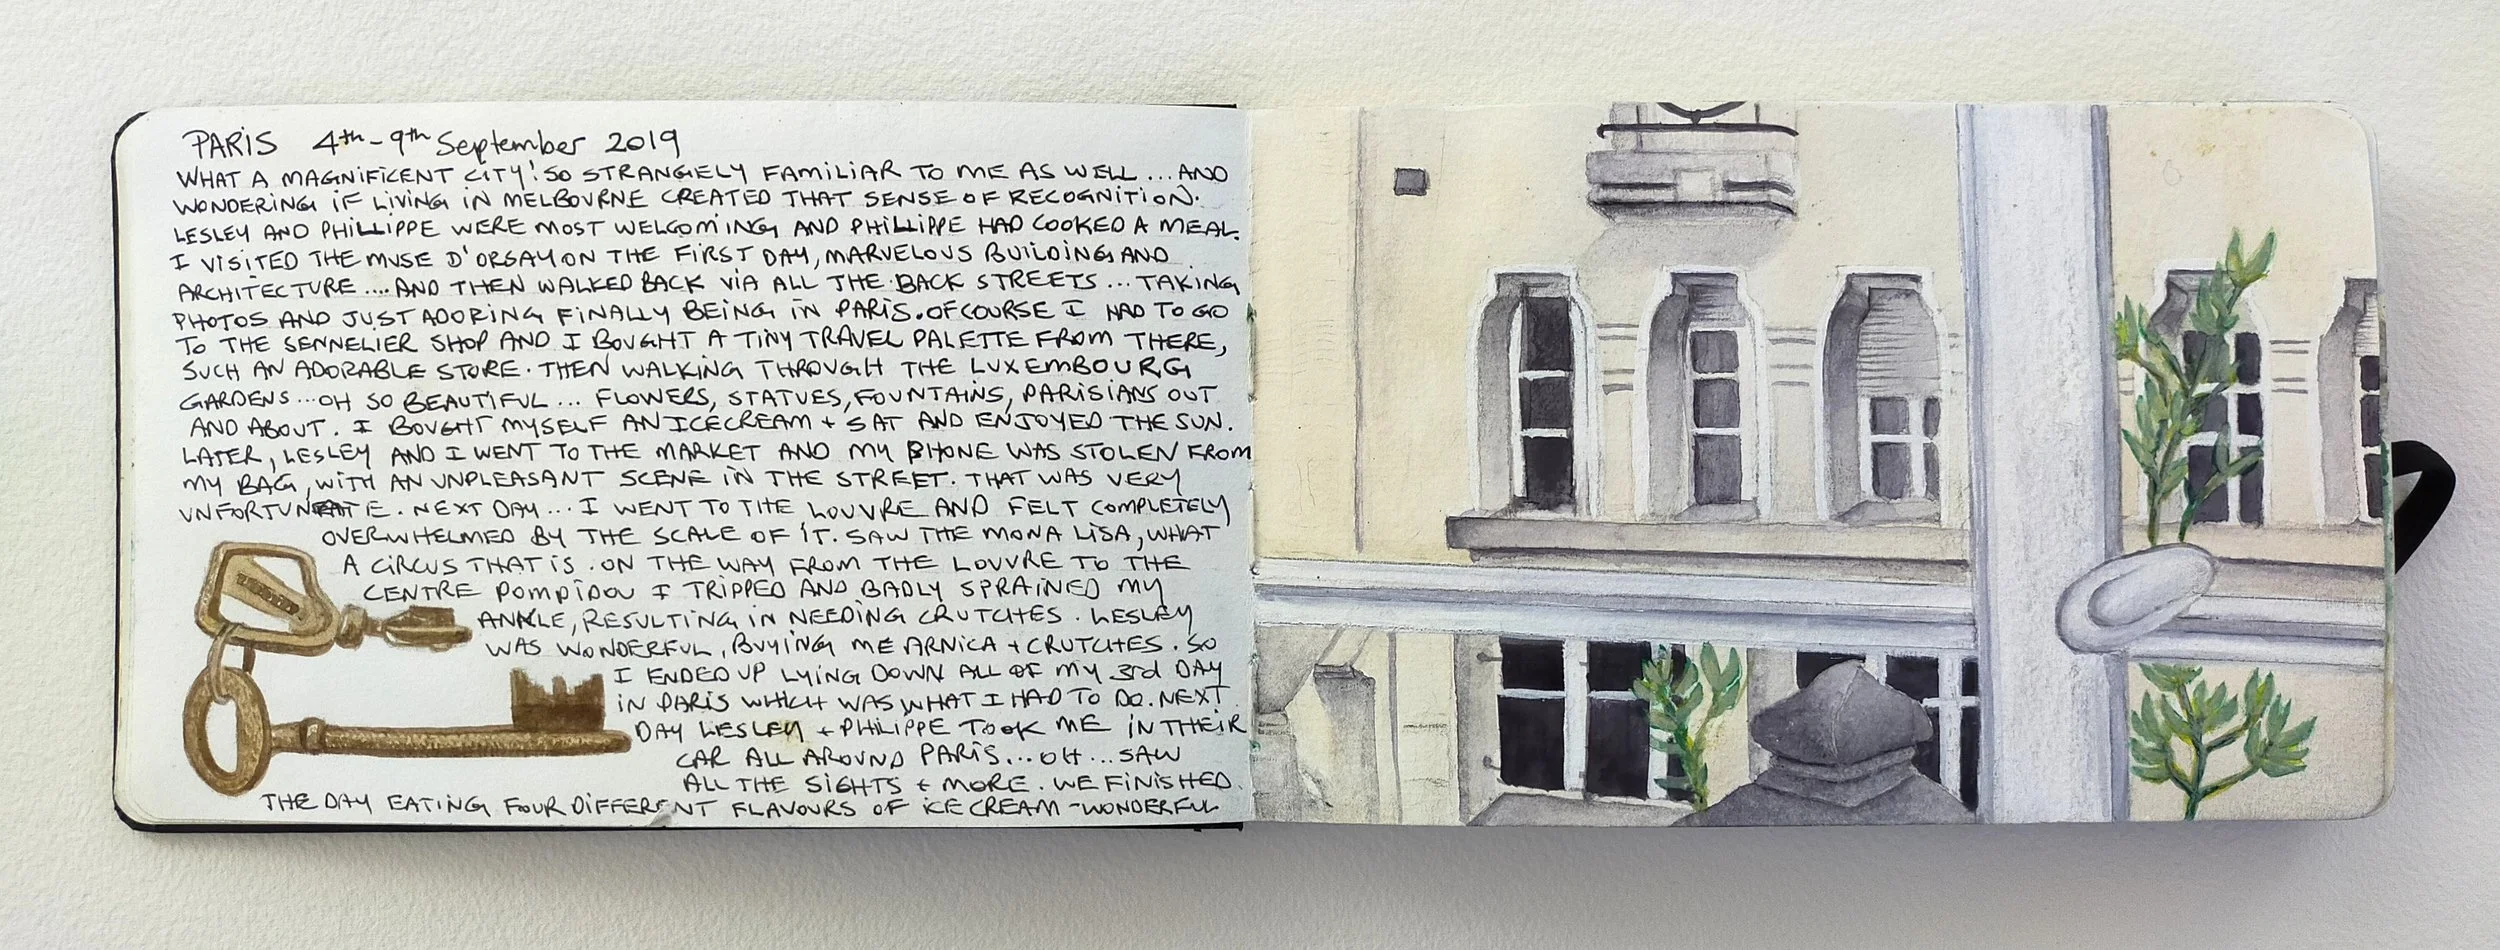 PARIS 4th-9th September 2019
WHAT A MAGNIFICENT CITY! SO STRANGELY FAMILIAR TO ME AS WELL ... AND
WONDERING IF LIVING IN MELBOURNE CREATED THAT SENSE OF RECOGNITION.
LESLEY AND PHILLIPPE WERE MOST WELCOMING AND PHILLIPPE HAD COOKED A MEAL.
I VISITED THE MUSE D'ORSAY ON THE FIRST DAY, MARVELOUS BUILDING AND
ARCHITECTURE .... AND THEN WALKED BACK VIA ALL THE BACK STREETS ... TAKING
PHOTOS AND JUST ADORING FINALLY BEING IN PARIS. OFCOURSE I HAD TO GO
TO THE SENNELIER SHOP AND I BOUGHT A TINY TRAVEL PALETTE FROM THERE,
SUCH AN ADORABLE STORE. THEN WALKING THROUGH THE LUXEMBOURG
GARDENS ... OH SO BEAUTIFUL ... FLOWERS, STATUES, FOUNTAINS, PARISIANS OUT
AND ABOUT. I BOUGHT MYSELF AN ICECREAM + SAT AND ENJOYED THE SUN.
LATER, LESLEY AND I WENT TO THE MARKET AND MY PHONE WAS STOLEN FROM
MY BAG, WITH AN UNPLEASANT SCENE IN THE STREET. THAT WAS VERY
UNFORTUNATE. NEXT DAY ... I WENT TO THE LOUVRE AND FELT COMPLETELY
OVERWHELMED BY THE SCALE OF IT. SAW THE MONA LISA, WHAT
A CIRCUS THAT IS. ON THE WAY FROM THE LOUVRE TO THE
CENTRE POMPIDOU I TRIPPED AND BADLY SPRAINED MY
ANKLE, RESULTING IN NEEDING CRUTCHES. LESLEY
WAS WONDERFUL, BUYING ME ARNICA + CRUTCHES. SO
I ENDED UP LYING DOWN ALL OF MY 3rd DAY
IN PARIS WHICH WAS WHAT I HAD TO DO. NEXT
DAY LESLEY + PHILIPPE TOOK ME IN THEIR
CAR ALL AROUND PARIS ... OH ... SAW
ALL THE SIGHTS + MORE. WE FINISHED
THE DAY EATING FOUR DIFFERENT FLAVOURS OF ICE CREAM - WONDERFUL